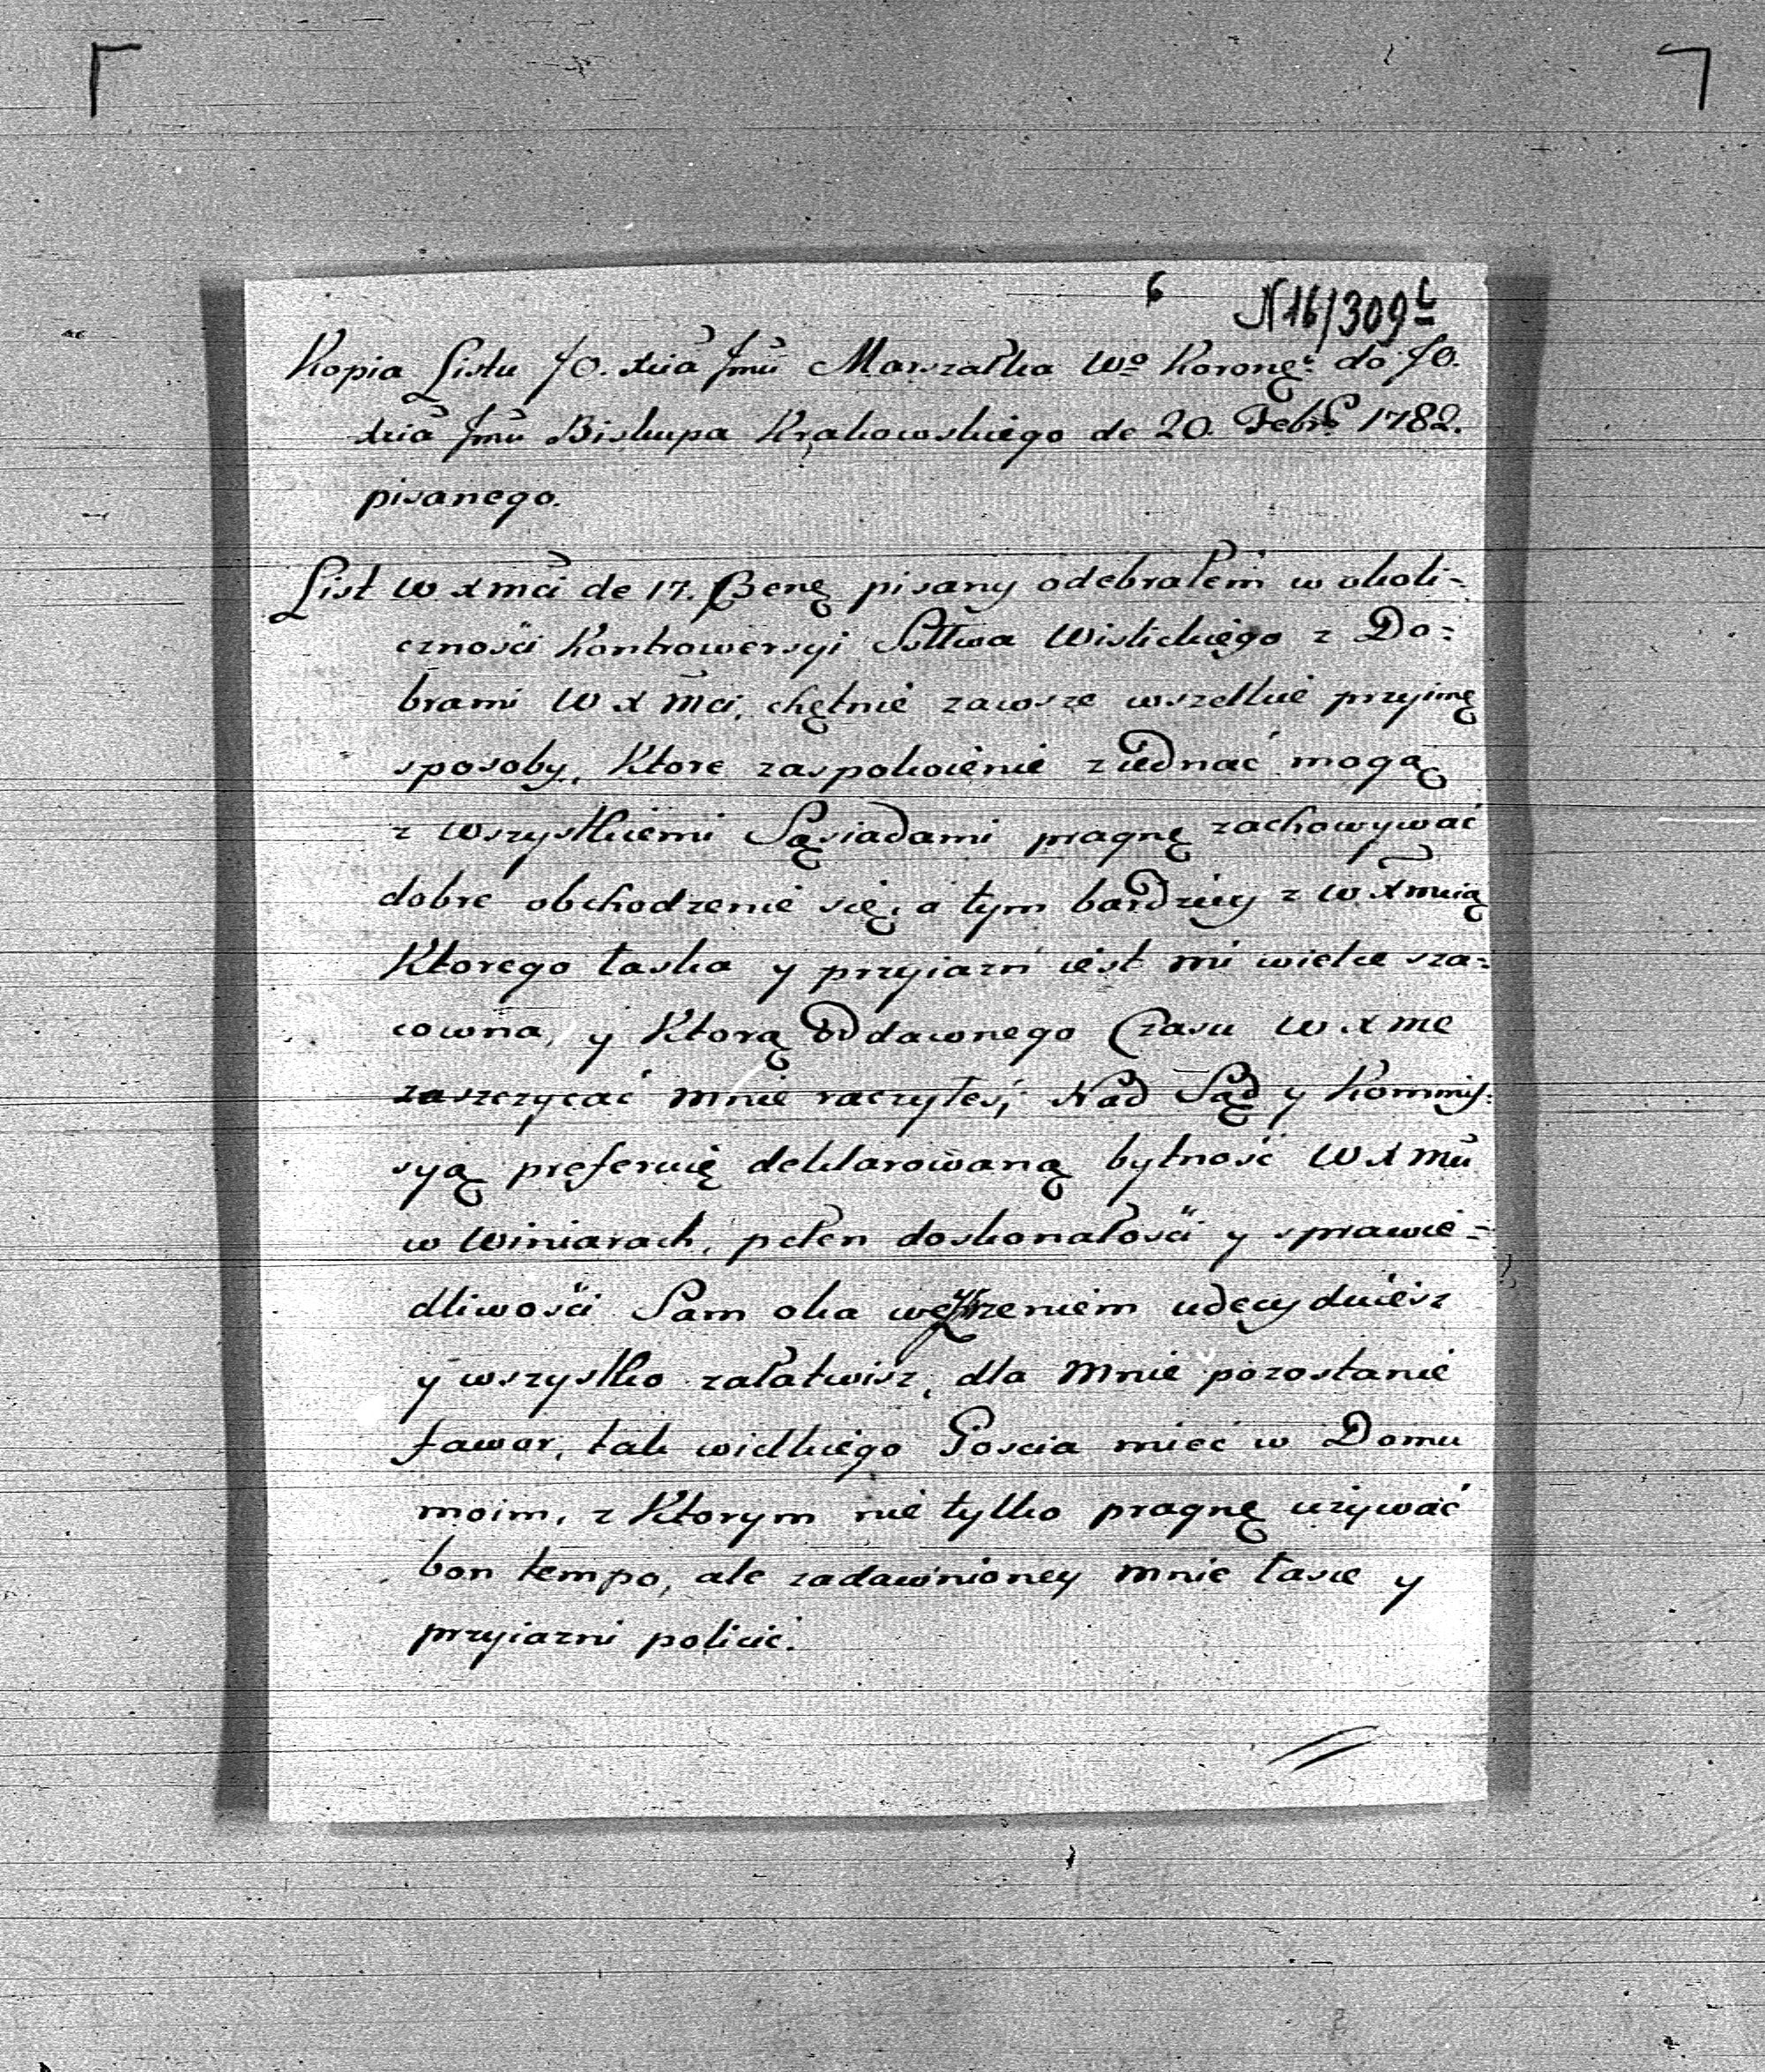 6 N 16/309 L
Kopia Listu JO. Xcia Jmci Marszałka Wo Koronneg: do JO.
Xcia Jmci Biskupa Krakowskiego de 20. Febr. 1782.
pisanego.
List W X Mci de 17. pisany odebrałem w okoli-
cznosci Kontrowersyi Sttwa Wislickiego z Do:
brami W X Mci, chętnie zawsze wszelkie przyimę
sposoby, Ktore zaspokoienie ziednać mogą
z wszystkiemi Sąsiadami pragnę zachowywać
dobre obchodzenie się, a tym bardziey z W. X mcią
Ktorego łaska y przyiazń iest mi wielce sza-
cowna, y Ktorą oddawnego Czasu W X mc
zaszczycać mnie raczyłeś, Nad Sąd y Kommis:
syą preferuię deklarowaną bytność W X Mci
w Winiarach, pełen doskonałości y sprawie-
dliwości Sam oka weyzrzeniem udecyduiesz
y wszystko załatwisz, dla mnie pozostanie
fawor, tak wielkiego Goscia mieć w Domu
moim, z Ktorym nie tylko pragnę używać
bon tempo, ale zadawnioney mnie łasce y
przyiazni policic.